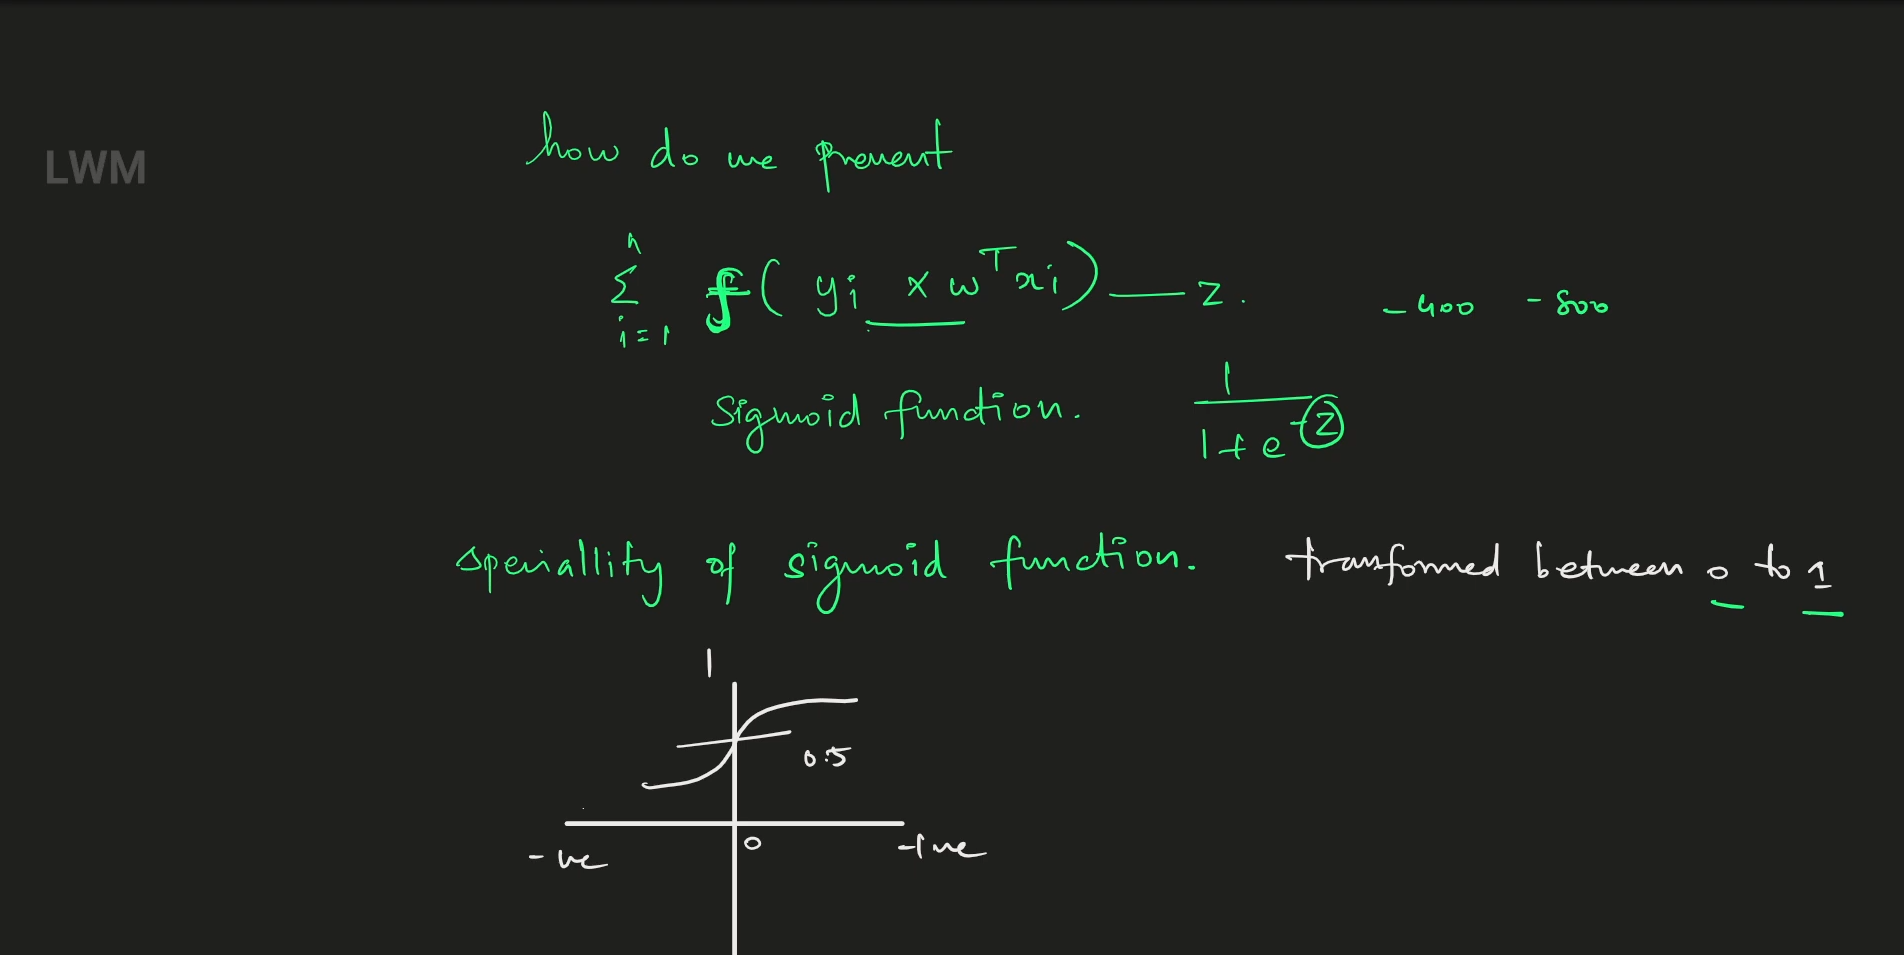 LWM
how do we prevent
n
Σ f( yi × wᵀxi) — z. -400 -800
i=1
Sigmoid function. 1/(1+e^-z)
speciallity of sigmoid function. transformed between 0 to 1
1
0.5
0
-ve +ve